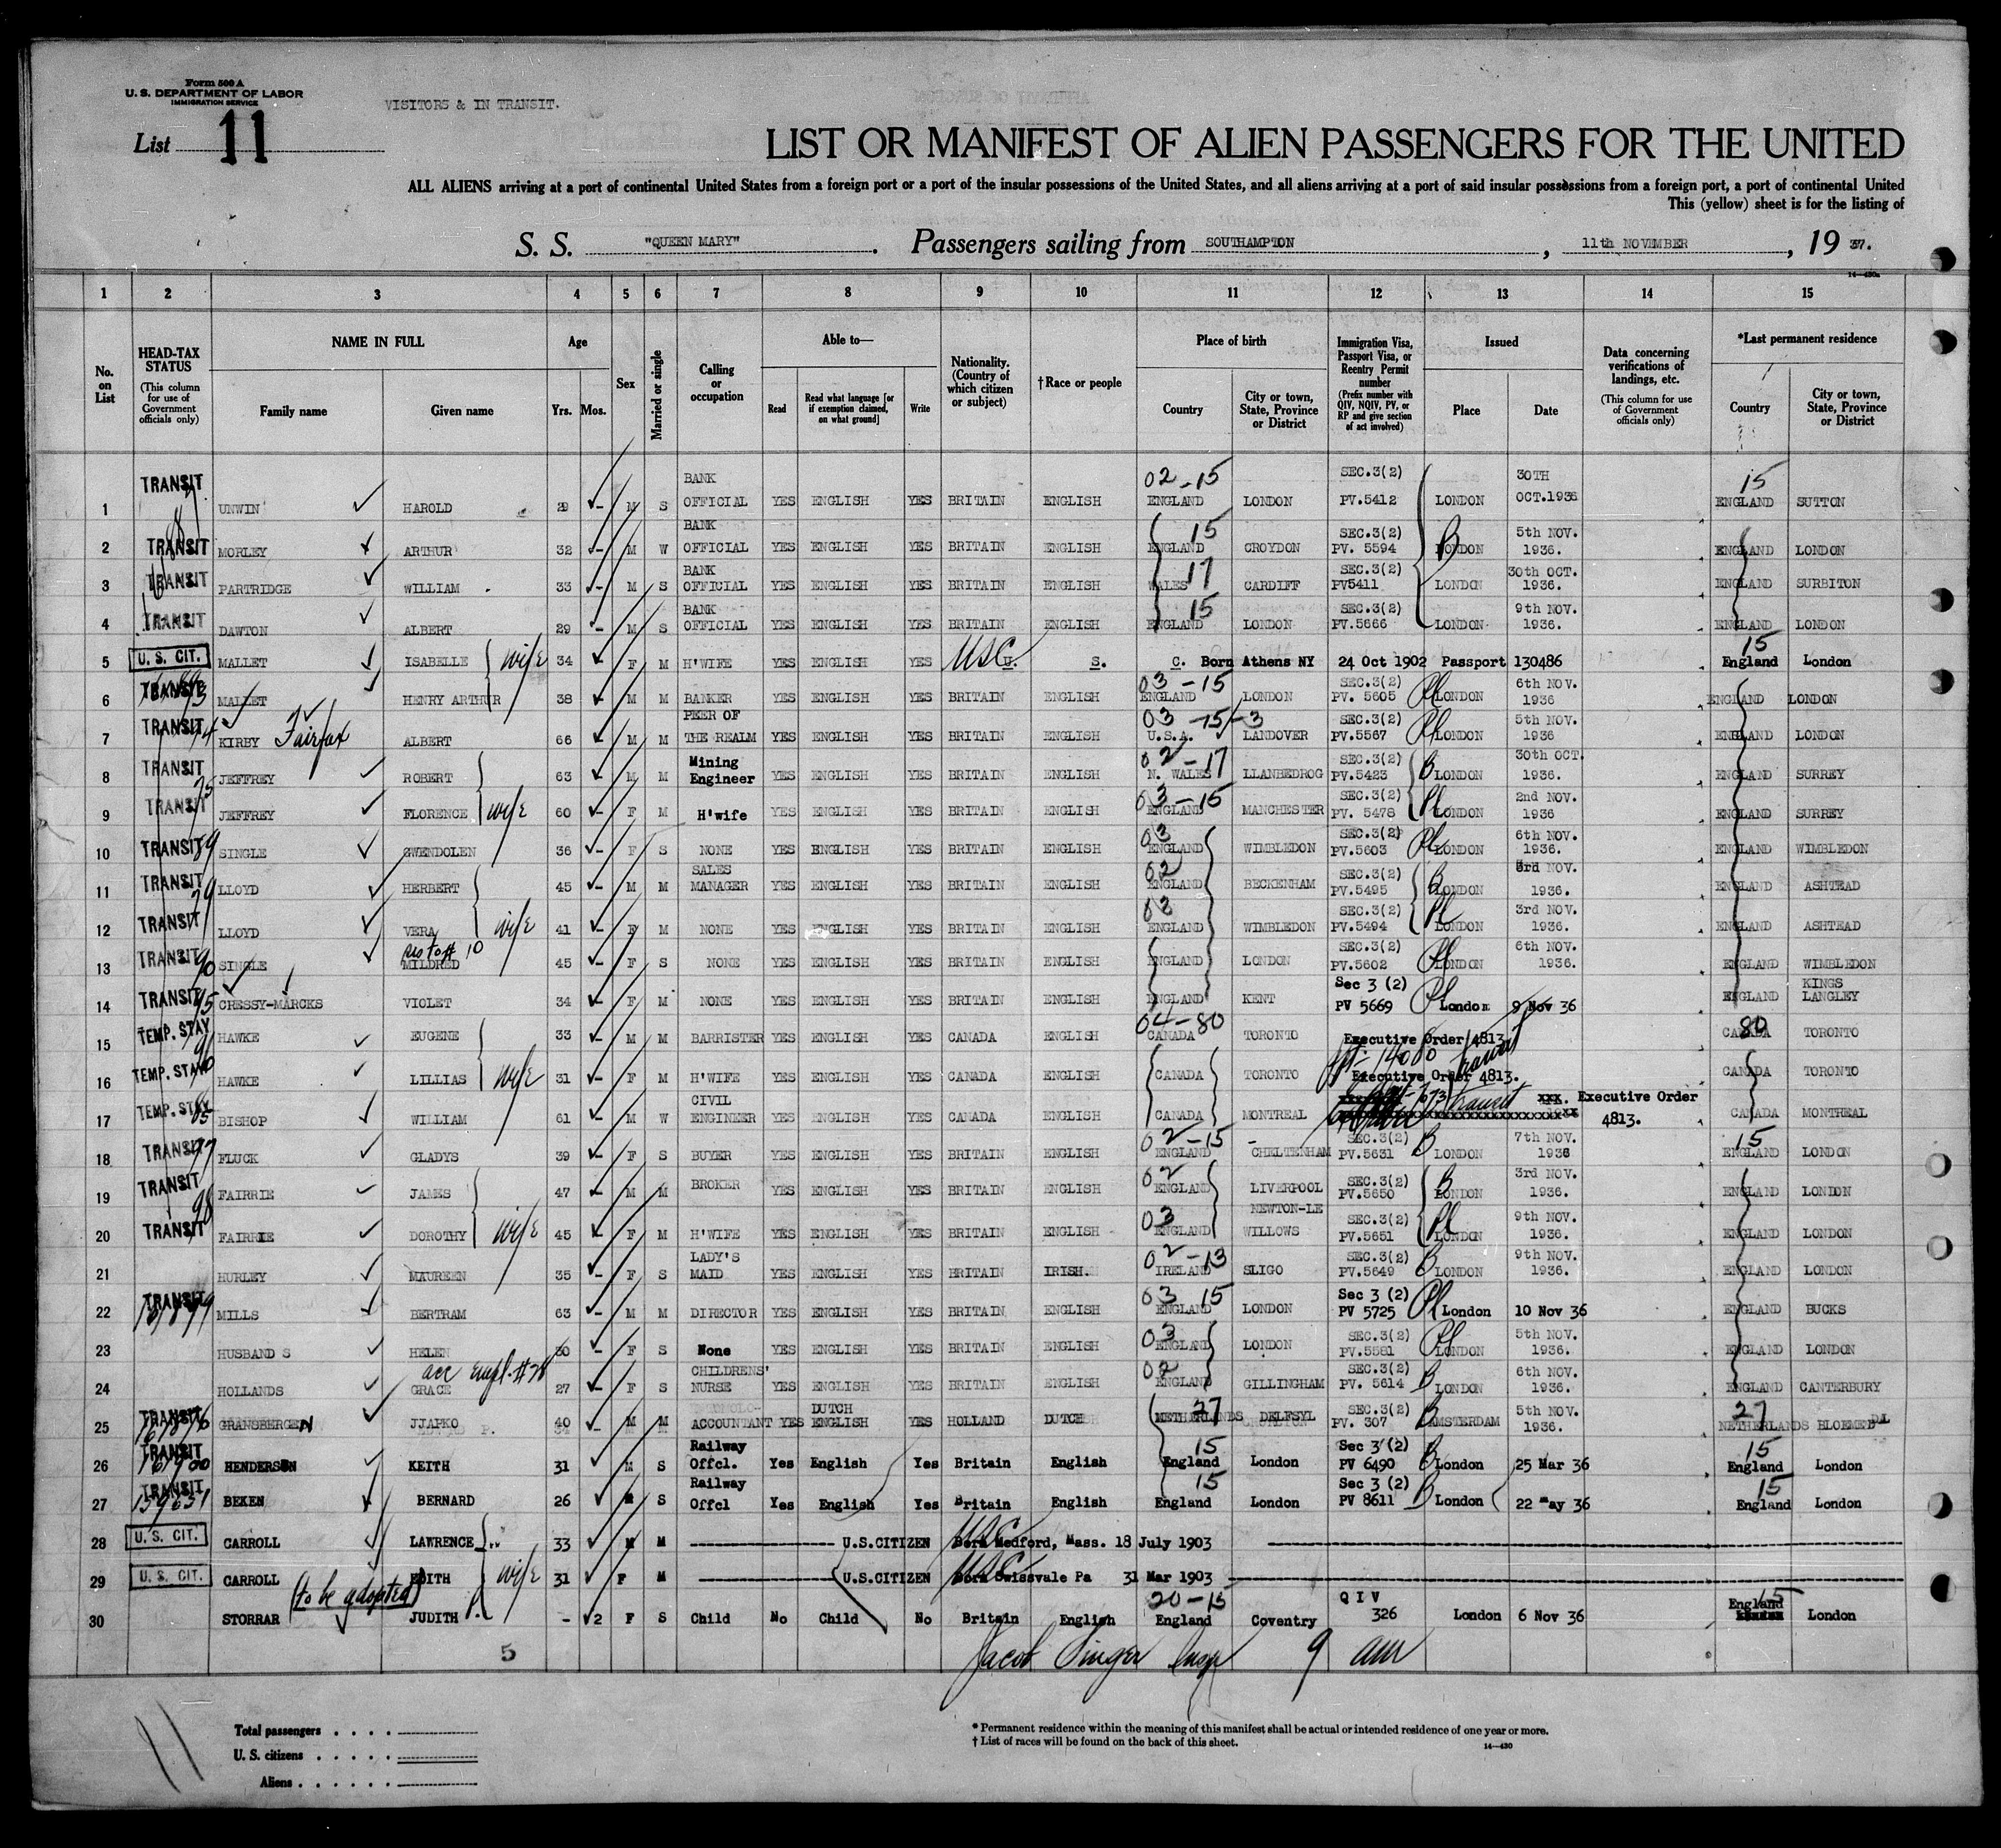 Form 500 A
U. S. DEPARTMENT OF LABOR
IMMIGRATION SERVICE
VISITORS & IN TRANSIT.
List 11
LIST OR MANIFEST OF ALIEN PASSENGERS FOR THE UNITED
ALL ALIENS arriving at a port of continental United States from a foreign port or a port of the insular possessions of the United States, and all aliens arriving at a port of said insular possessions from a foreign port, a port of continental United
This (yellow) sheet is for the listing of
S. S. "QUEEN MARY". Passengers sailing from SOUTHAMPTON, 11th NOVEMBER, 19 37.
1 2 3 4 5 6 7 8 9 10 11 12 13 14 15
No. on List
HEAD-TAX STATUS (This column for use of Government officials only)
NAME IN FULL
Family name Given name
Age
Yrs. Mos.
Sex
Married or single
Calling or occupation
Able to—
Read
Read what language [or if exemption claimed, on what ground]
Write
Nationality. (Country of which citizen or subject)
†Race or people
Place of birth
Country
City or town, State, Province or District
Immigration Visa, Passport Visa, or Reentry Permit number (Prefix number with QIV, NQIV, PV, or RP and give section of act involved)
Issued
Place Date
Data concerning verifications of landings, etc. (This column for use of Government officials only)
*Last permanent residence
Country
City or town, State, Province or District
1 TRANSIT UNWIN HAROLD 29 M S BANK OFFICIAL YES ENGLISH YES BRITAIN ENGLISH 02-15 ENGLAND LONDON SEC.3(2) PV.5412 LONDON 30TH OCT.1936 15 ENGLAND SUTTON
2 TRANSIT MORLEY ARTHUR 32 M W BANK OFFICIAL YES ENGLISH YES BRITAIN ENGLISH 15 ENGLAND CROYDON SEC.3(2) PV. 5594 LONDON 5th NOV. 1936. ENGLAND LONDON
3 TRANSIT PARTRIDGE WILLIAM 33 M S BANK OFFICIAL YES ENGLISH YES BRITAIN ENGLISH 17 WALES CARDIFF SEC.3(2) PV5411 LONDON 30th OCT. 1936. ENGLAND SURBITON
4 TRANSIT DAWTON ALBERT 29 M S BANK OFFICIAL YES ENGLISH YES BRITAIN ENGLISH 15 ENGLAND LONDON SEC.3(2) PV.5666 LONDON 9th NOV. 1936. ENGLAND LONDON
5 U. S. CIT. MALLET ISABELLE wife 34 F M H'WIFE YES ENGLISH YES USC U. S. C. Born Athens NY 24 Oct 1902 Passport 130486 15 England London
6 TRANSIT MALLET HENRY ARTHUR 38 M M BANKER YES ENGLISH YES BRITAIN ENGLISH 03-15 ENGLAND LONDON SEC.3(2) PV. 5605 LONDON 6th NOV. 1936 ENGLAND LONDON
7 TRANSIT KIRBY Fairfax ALBERT 66 M M PEER OF THE REALM YES ENGLISH YES BRITAIN ENGLISH 03 -15-3 U.S.A. LANDOVER SEC.3(2) PV.5567 LONDON 5th NOV. 1936 ENGLAND LONDON
8 TRANSIT JEFFREY ROBERT 63 M M Mining Engineer YES ENGLISH YES BRITAIN ENGLISH 02-17 N. WALES LLANBEDROG SEC.3(2) PV.5423 B LONDON 30th OCT. 1936. ENGLAND SURREY
9 TRANSIT JEFFREY FLORENCE wife 60 F M H'wife YES ENGLISH YES BRITAIN ENGLISH 03-15 ENGLAND MANCHESTER SEC.3(2) PV. 5478 LONDON 2nd NOV. 1936 ENGLAND SURREY
10 TRANSIT SINGLE GWENDOLEN 36 F S NONE YES ENGLISH YES BRITAIN ENGLISH 03 ENGLAND WIMBLEDON SEC.3(2) PV.5603 LONDON 6th NOV. 1936. ENGLAND WIMBLEDON
11 TRANSIT LLOYD HERBERT 45 M M SALES MANAGER YES ENGLISH YES BRITAIN ENGLISH 02 ENGLAND BECKENHAM SEC.3(2) PV.5495 B LONDON 3rd NOV. 1936. ENGLAND ASHTEAD
12 TRANSIT LLOYD VERA wife 41 F M NONE YES ENGLISH YES BRITAIN ENGLISH 03 ENGLAND WIMBLEDON SEC.3(2) PV.5494 LONDON 3rd NOV. 1936. ENGLAND ASHTEAD
13 TRANSIT SINGLE MILDRED 45 F S NONE YES ENGLISH YES BRITAIN ENGLISH ENGLAND LONDON SEC.3(2) PV.5602 LONDON 6th NOV. 1936. ENGLAND WIMBLEDON
14 TRANSIT CRESSY-MARCKS VIOLET 34 F M NONE YES ENGLISH YES BRITAIN ENGLISH ENGLAND KENT Sec 3 (2) PV 5669 London 9 Nov 36 ENGLAND KINGS LANGLEY
15 TEMP. STAY HAWKE EUGENE 33 M M BARRISTER YES ENGLISH YES CANADA ENGLISH 04-80 CANADA TORONTO Executive Order 4813. 80 CANADA TORONTO
16 TEMP. STAY HAWKE LILLIAS wife 31 F M H'WIFE YES ENGLISH YES CANADA ENGLISH CANADA TORONTO Executive Order 4813. CANADA TORONTO
17 TEMP. STAY BISHOP WILLIAM 61 M W CIVIL ENGINEER YES ENGLISH YES CANADA ENGLISH CANADA MONTREAL xxx. Executive Order 4813. CANADA MONTREAL
18 TRANSIT FLUCK GLADYS 39 F S BUYER YES ENGLISH YES BRITAIN ENGLISH 02-15 ENGLAND CHELTENHAM SEC.3(2) PV.5631 B LONDON 7th NOV. 1936 15 ENGLAND LONDON
19 TRANSIT FAIRRIE JAMES 47 M M BROKER YES ENGLISH YES BRITAIN ENGLISH 02 ENGLAND LIVERPOOL SEC.3(2) PV.5650 B LONDON 3rd NOV. 1936. ENGLAND LONDON
20 TRANSIT FAIRRIE DOROTHY wife 45 F M H'WIFE YES ENGLISH YES BRITAIN ENGLISH 03 ENGLAND NEWTON-LE WILLOWS SEC.3(2) PV.5651 LONDON 9th NOV. 1936. ENGLAND LONDON
21 HURLEY MAUREEN 35 F S LADY'S MAID YES ENGLISH YES BRITAIN IRISH. 02-13 IRELAND SLIGO SEC.3(2) PV.5649 B LONDON 9th NOV. 1936. ENGLAND LONDON
22 TRANSIT MILLS BERTRAM 63 M M DIRECTOR YES ENGLISH YES BRITAIN ENGLISH 03 15 ENGLAND LONDON Sec 3 (2) PV 5725 London 10 Nov 36 ENGLAND BUCKS
23 HUSBANDS HELEN F S None YES ENGLISH YES BRITAIN ENGLISH 03 ENGLAND LONDON SEC.3(2) PV.5581 LONDON 5th NOV. 1936. ENGLAND LONDON
24 HOLLANDS GRACE 27 F S CHILDRENS' NURSE YES ENGLISH YES BRITAIN ENGLISH 02 ENGLAND GILLINGHAM SEC.3(2) PV. 5614 B LONDON 6th NOV. 1936. ENGLAND CANTERBURY
25 TRANSIT GRANSBERGEN JJAPKO 40 M M ACCOUNTANT YES DUTCH ENGLISH YES HOLLAND DUTCH 27 NETHERLANDS DELFSYL SEC.3(2) PV. 307 AMSTERDAM 5th NOV. 1936. 27 NETHERLANDS
26 TRANSIT HENDERSON KEITH 31 M S Railway Offcl. Yes English Yes Britain English 15 England London Sec 3 (2) PV 6490 B London 25 Mar 36 15 England London
27 TRANSIT BEKEN BERNARD 26 M S Railway Offcl Yes English Yes Britain English 15 England London Sec 3 (2) PV 8611 B London 22 May 36 15 England London
28 U. S. CIT. CARROLL LAWRENCE 33 M M U.S.CITIZEN USC Born Medford, Mass. 18 July 1903
29 U. S. CIT. CARROLL EDITH wife 31 F M U.S.CITIZEN USC Born Swissvale Pa 31 Mar 1903
30 STORRAR (to be adopted) JUDITH P. - 2 F S Child No Child No Britain English 20-15 England Coventry Q I V 326 London 6 Nov 36 15 England London
5
Jacob Singer Insp 9 am
11
Total passengers
U. S. citizens
Aliens
* Permanent residence within the meaning of this manifest shall be actual or intended residence of one year or more.
† List of races will be found on the back of this sheet.
14—430